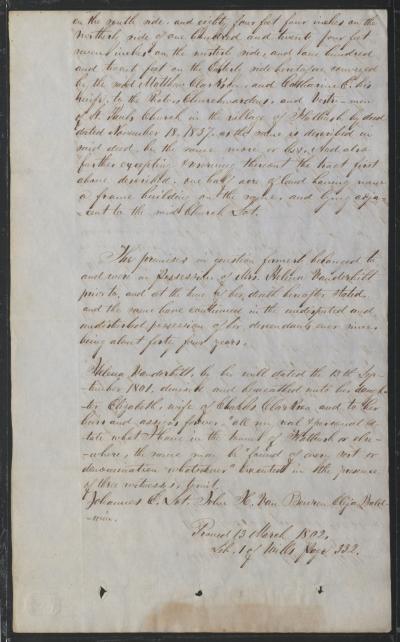 on the south side, and eighty four feet four inches on the
Northerly side of one hundred and twenty four feet
seven inches on the northerly side, and two hundred
and twenty feet on the Easterly side heretofore conveyed
by the said Matthew Clarkson, and Catharine E. his
wife, to the Rector, Churchwardens, and Vestry-men
of St. Pauls Church in the village of Flatbush by deed
dated November 18. 1837. as the same is described in
said deed, be the same more or less. And also
further excepting & reserving thereout the tract first
above described, one half acre of land having now
a frame building on the same, and lying adja-
-cent to the said Church Lot.
The premises in question formerly belonged to
and were in Possession of Mrs. Helena Vanderbilt
prior to, and at the time of her death hereafter stated
and the same have continued in the undisputed and
undisturbed possession of her descendants ever since
being about forty four years.
Helena Vanderbilt, by her will dated the 12th Sep-
tember 1801. devised and bequeathed unto her daugh-
ter Elizabeth, wife of Charles Clarkson and to her
heirs and assigns forever "all my real & personal es-
tate what I have in the town of Flatbush or else-
-where, the same may be "found of every sort or
denomination whatsoever" Executed in the presence
of three witnesses, to wit,
Johannes E. Lot. John H. Van Beuren Eliza Bald-
-win.
Proved 13 March 1802.
Lib. 1 of Wills Page 332.